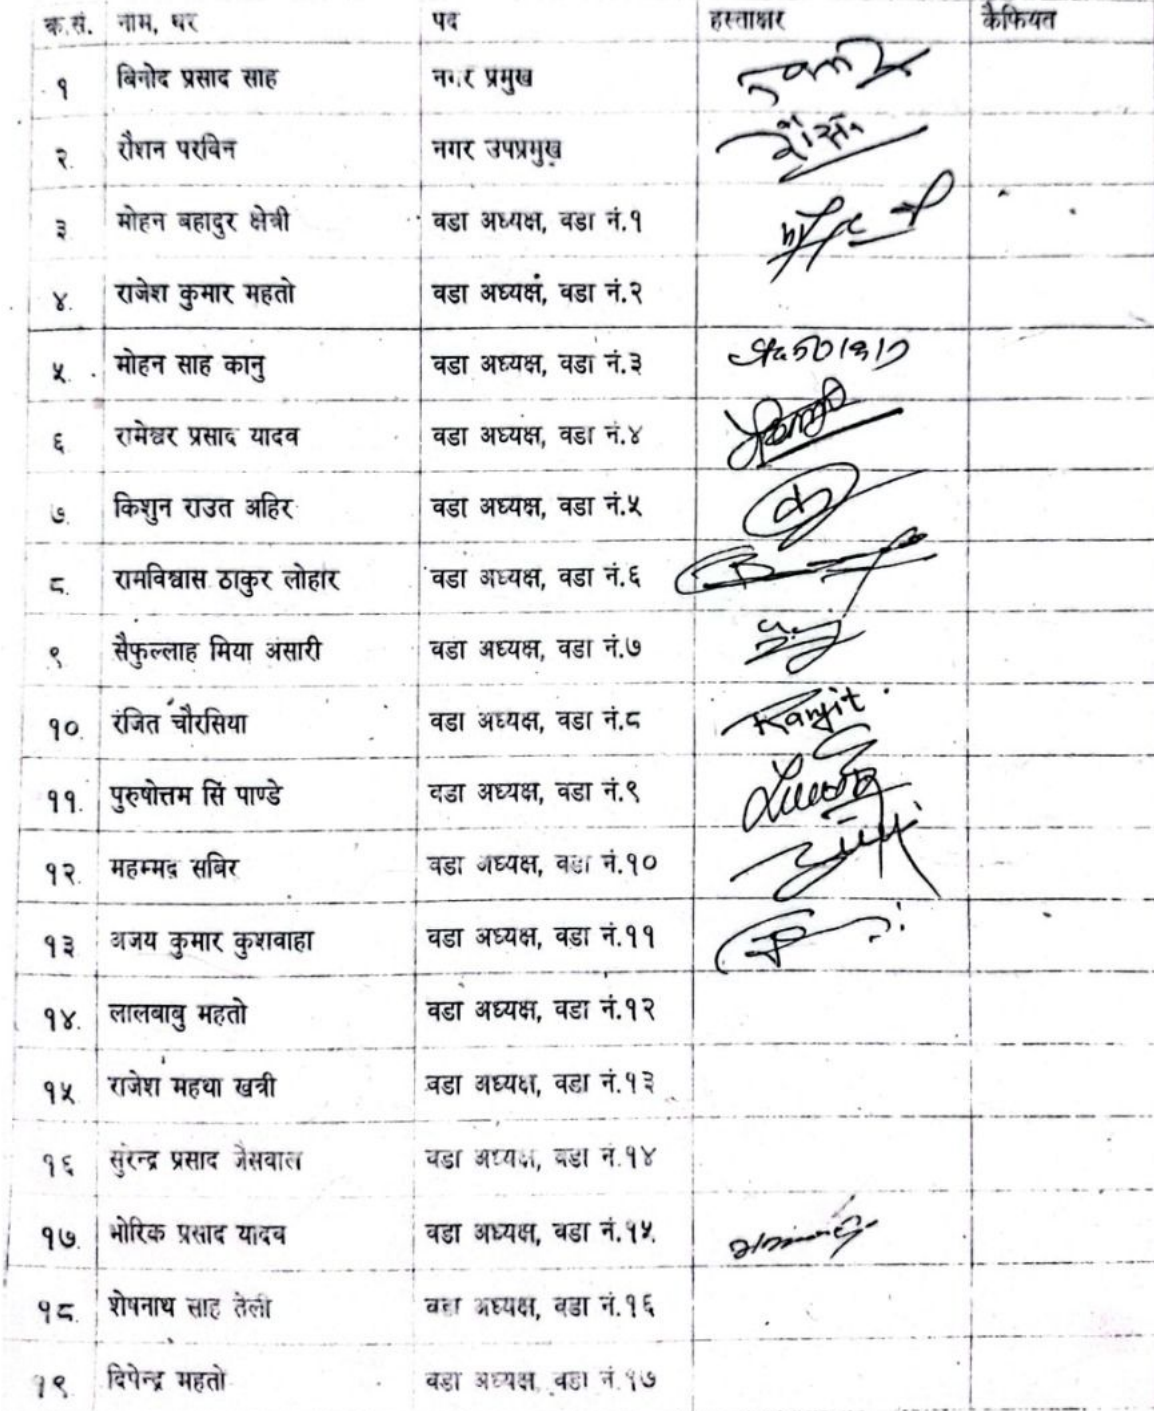 क.सं. नाम, थर पद हस्ताक्षर कैफियत
१ बिनोद प्रसाद साह नगर प्रमुख
२. रौशन परविन नगर उपप्रमुख
३ मोहन बहादुर क्षेत्री वडा अध्यक्ष, वडा नं.१
४. राजेश कुमार महतो वडा अध्यक्ष, वडा नं.२
५. मोहन साह कानु वडा अध्यक्ष, वडा नं.३
६ रामेश्वर प्रसाद यादव वडा अध्यक्ष, वडा नं.४
७. किशुन राउत अहिर वडा अध्यक्ष, वडा नं.५
८. रामविश्वास ठाकुर लोहार वडा अध्यक्ष, वडा नं.६
९ सैफुल्लाह मिया अंसारी वडा अध्यक्ष, वडा नं.७
१०. रंजित चौरसिया वडा अध्यक्ष, वडा नं.८ Ranjit
११. पुरुषोत्तम सिं पाण्डे वडा अध्यक्ष, वडा नं.९
१२. महम्मद सबिर वडा अध्यक्ष, वडा नं.१०
१३ अजय कुमार कुशवाहा वडा अध्यक्ष, वडा नं.११
१४. लालबाबु महतो वडा अध्यक्ष, वडा नं.१२
१५ राजेश महथा खत्री वडा अध्यक्ष, वडा नं.१३
१६ सुरेन्द्र प्रसाद जैसवाल वडा अध्यक्ष, वडा नं.१४
१७. भोरिक प्रसाद यादव वडा अध्यक्ष, वडा नं.१५
१८. शेषनाथ साह तेली वडा अध्यक्ष, वडा नं.१६
१९ दिपेन्द्र महतो वडा अध्यक्ष, वडा नं.१७